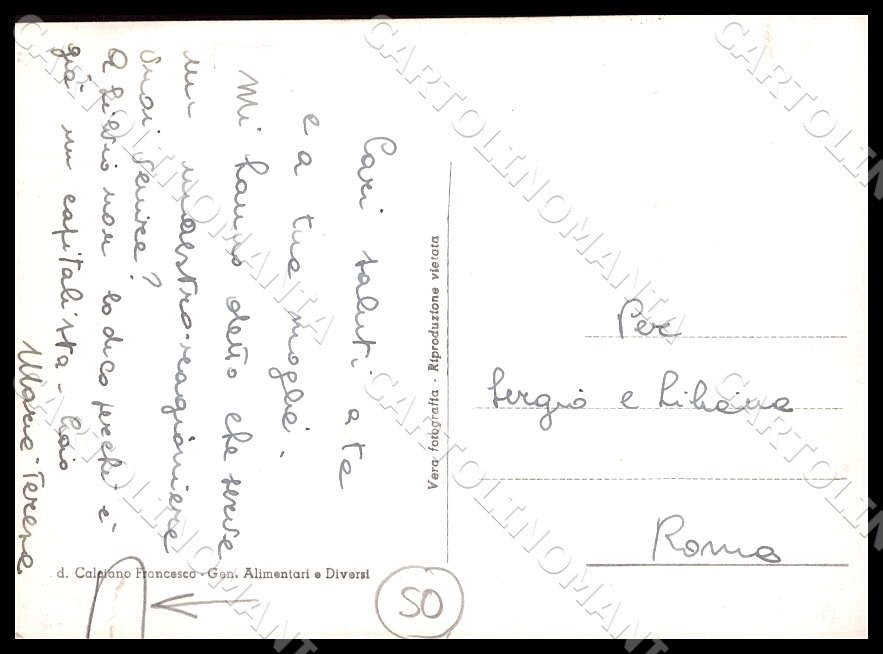 Cari saluti a te
e a tua moglie.
Mi hanno detto che serve
un maestro-ragioniere
vuoi venire?
A Livio non lo dico perché è
già un capitalista - Ciao
Maria Teresa
Vera fotografia - Riproduzione vietata
Per
Sergio e Liliana
Roma
d. Calciano Francesco - Gen. Alimentari e Diversi
50
CARTOLINOMANTI